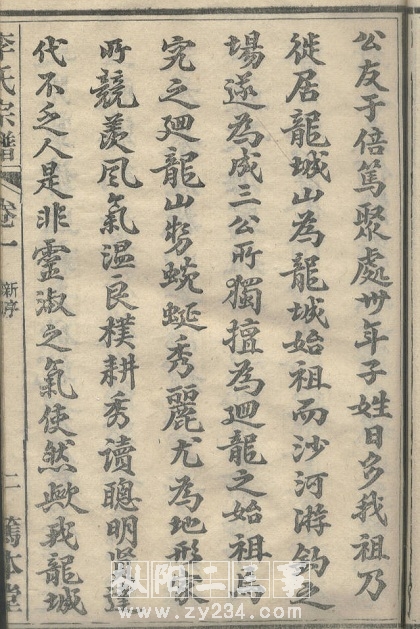 公友于倍篤聚處卅年子姓日多我祖乃
徙居龍城山為龍城始祖而沙河游釣之
場遂為成三公所獨擅為廻龍之始祖焉
究之廻龍山勢蜿蜒秀麗尤為地形家
所競羨風氣溫良樸耕秀讀聰明賢達
代不乏人是非靈淑之氣使然歟我龍城
李氏宗譜
卷一
新序
二
篤本堂
枞阳二三事
www.zy234.com